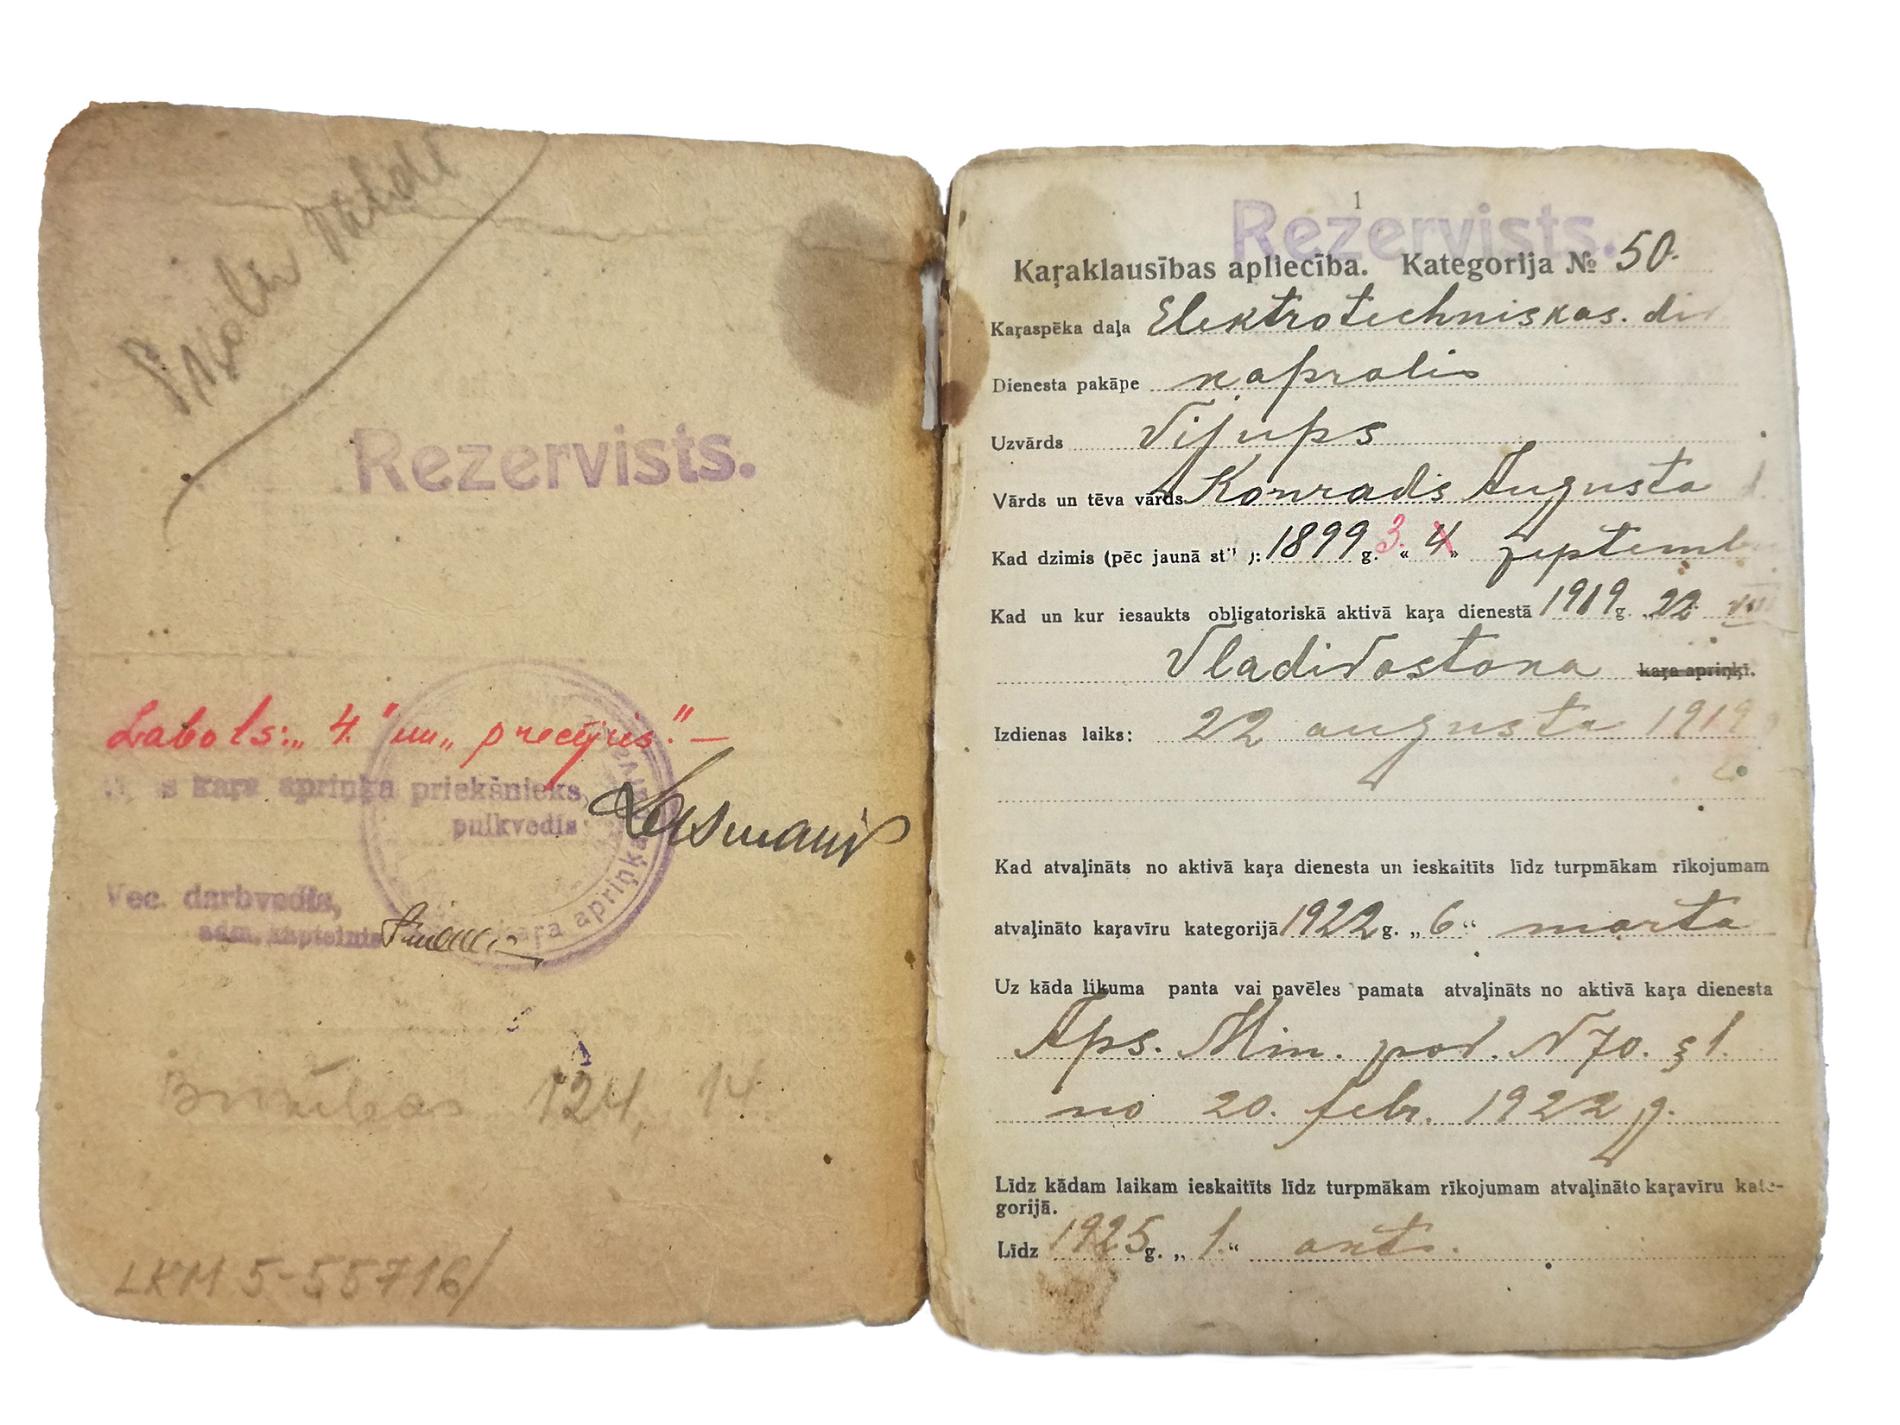 Rezervists.
Labots: „4." un „precējies". —
kaŗa apriņķa priekšnieks,
pulkvedis
Vec. darbvedis,
adm. kapteinis
kaŗa apriņķa
124, 14.
LKM 5-55716/
1
Rezervists.
Kaŗaklausības apliecība. Kategorija № 50.
Kaŗaspēka daļa Elektrotechniskas. div
Dienesta pakāpe kapralis
Uzvārds Vijups
Vārds un tēva vārds Konrads Augusta d.
Kad dzimis (pēc jaunā st ): 1899 g. 3. „4" septemb
Kad un kur iesaukts obligatoriskā aktivā kaŗa dienestā 1919 g. „22 VIII
Vladivostoka kaŗa apriņķī.
Izdienas laiks: 22 augusta 1919
Kad atvaļināts no aktivā kaŗa dienesta un ieskaitīts līdz turpmākam rīkojumam
atvaļināto kaŗavīru kategorijā 1922 g. „6" marta
Uz kāda likuma panta vai pavēles pamata atvaļināts no aktivā kaŗa dienesta
Aps. Min. pav. N 70. § 1.
no 20. febr. 1922 g.
Līdz kādam laikam ieskaitīts līdz turpmākam rīkojumam atvaļināto kaŗavīru kate-
gorijā.
Līdz 1925 g. „1." okt.